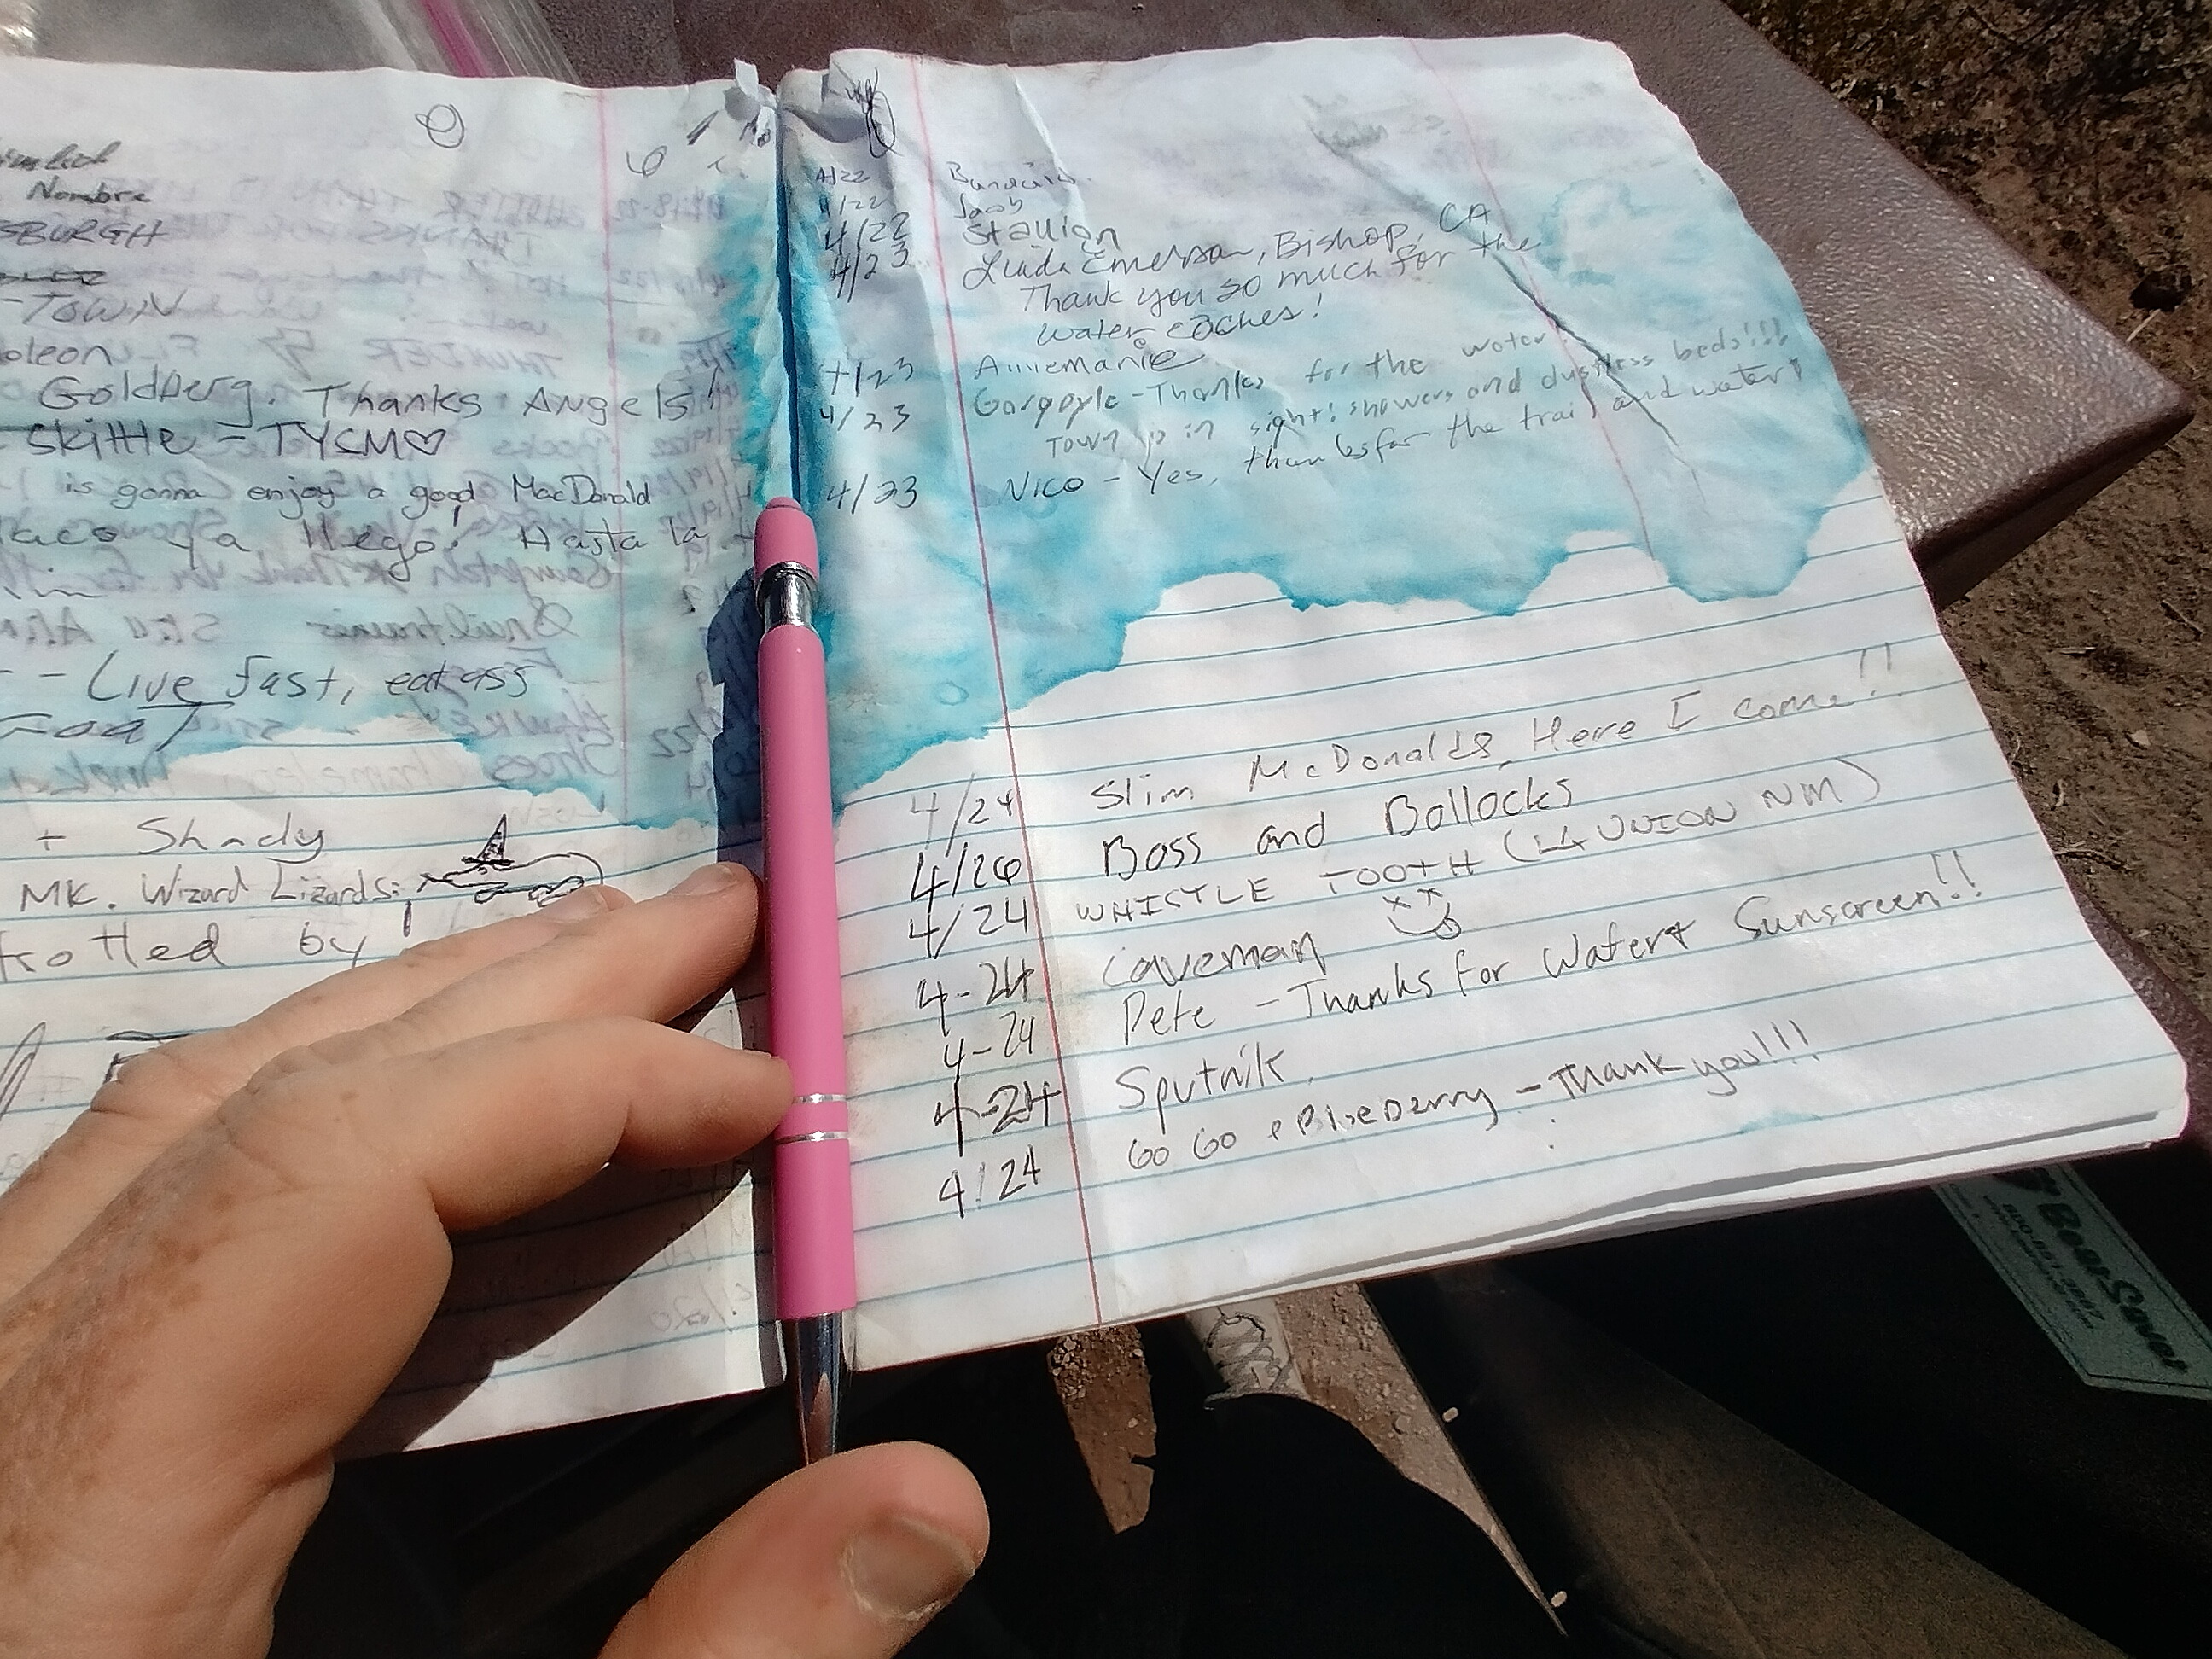 Nombre
SBURGH
-TOWN
oleon
Goldberg. Thanks Angels!
Skittle - TYSM♡
is gonna enjoy a good MacDonald
ya llego! Hasta la
-- Live fast, eat ass
+ Shady
MK. Wizard Lizards:
rotted by
4/22
4/22 Jacob
4/22 Stallion
4/23 Linda Emerson, Bishop, CA
Thank you so much for the
water caches!
4/23 Annemarie
4/23 Gargoyle - Thanks for the water!
Town is in sight! showers and dustless beds!!!
4/23 Nico - Yes, thanks for the trail and water!
4/24 Slim McDonalds, Here I come!!
4/26 Boss and Bollocks
4/24 WHISTLE TOOTH (LA UNION NM)
4-24 Caveman
4-24 Pete - Thanks for Water & Sunscreen!!
4-24 Sputnik
4/24 GoGo & Blueberry - Thank you!!!
BearSaver